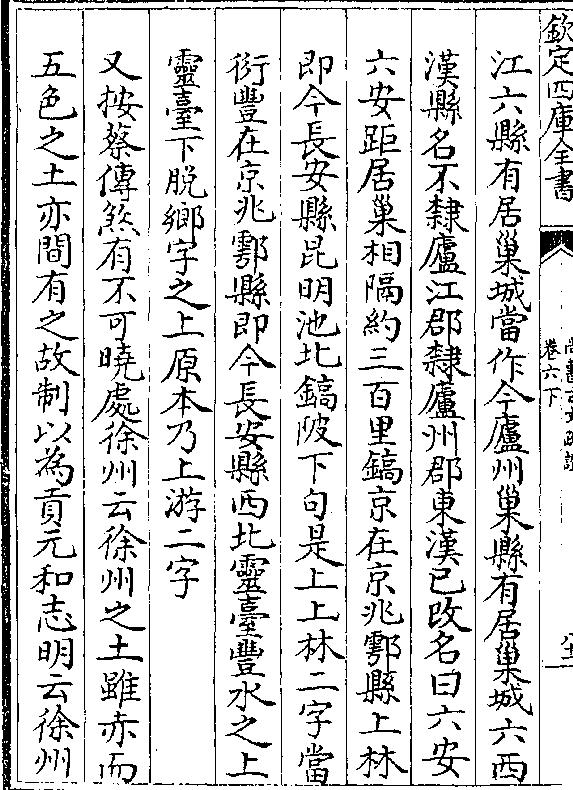 欽定四庫全書
尚書古文疏證
卷六下
江六縣有居巢城當作今廬州巢縣有居巢城六西
漢縣名不隸廬江郡隸廬州郡東漢已改名曰六安
六安距居巢相隔約三百里鎬京在京兆鄠縣上林
即今長安縣昆明池北鎬陂下句是上上林二字當
衍豐在京兆鄠縣即今長安縣西北靈臺豐水之上
靈臺下脱鄉字之上原本乃上游二字
又按蔡傳煞有不可曉處徐州云徐州之土雖赤而
五色之土亦間有之故制以為貢元和志明云徐州